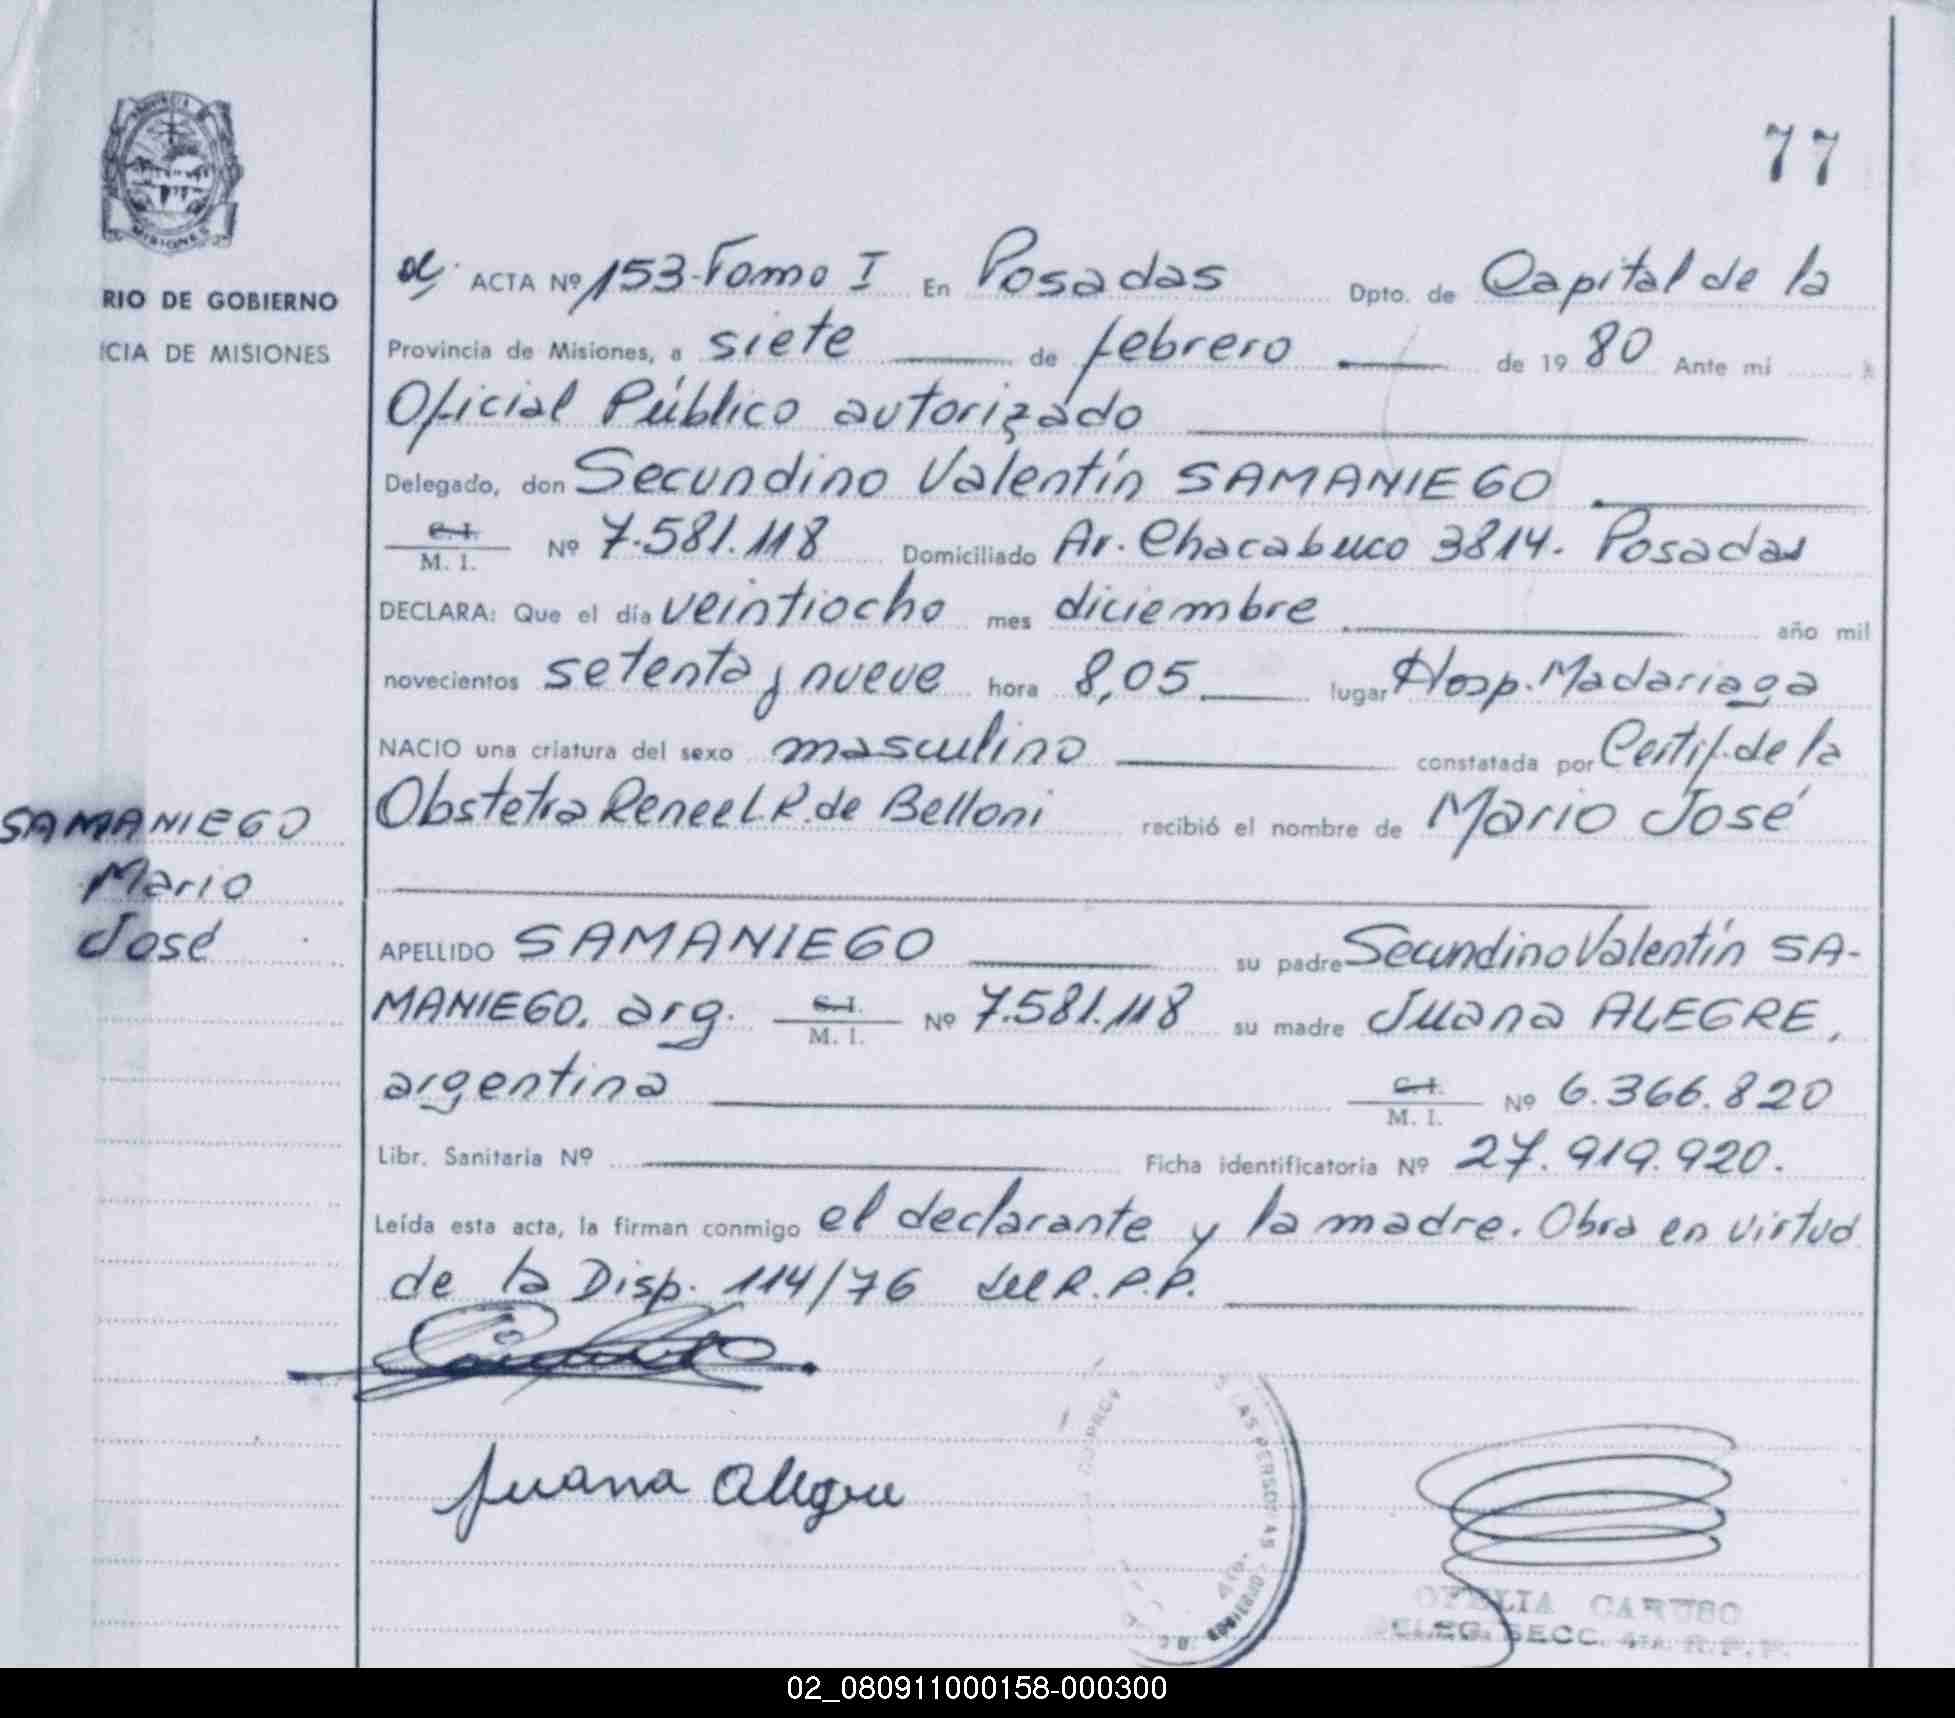 77
PROVINCIA DE
MISIONES
RIO DE GOBIERNO
ICIA DE MISIONES
ACTA Nº 153-Tomo I En Posadas Dpto. de Capital de la
Provincia de Misiones, a siete de febrero de 19 80 Ante mi
Oficial Público autorizado
Delegado, don Secundino Valentín SAMANIEGO
C. I.
M. I. Nº 7.581.118 Domiciliado Av. Chacabuco 3814. Posadas
DECLARA: Que el día veintiocho mes diciembre año mil
novecientos setenta y nueve hora 8,05 lugar Hosp. Madariaga
NACIO una criatura del sexo masculino constatada por Certif. de la
Obstetra Renee L.R. de Belloni recibió el nombre de Mario José
SAMANIEGO
Mario
José
APELLIDO SAMANIEGO su padre Secundino Valentín SA-
MANIEGO, arg. C. I. M. I. Nº 7.581.118 su madre Juana ALEGRE,
argentina C. I. M. I. Nº 6.366.820
Libr. Sanitaria Nº Ficha identificatoria Nº 27.919.920.
Leída esta acta, la firman conmigo el declarante y la madre. Obra en virtud
de la Disp. 114/76 del R.P.P.
Juana Alegre
LAS PERSONAS
OFELIA CARUSO
DELEG. SECC. 4ta. R.P.P.
02_080911000158-000300